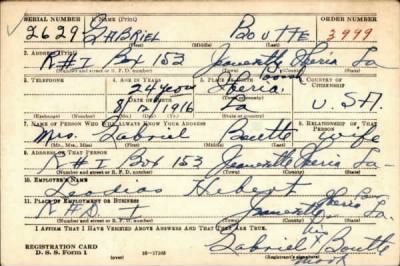 SERIAL NUMBER 1. NAME (Print) ORDER NUMBER
2629 GABRIEL BOUTTE 3999
(First) (Middle) (Last)
2. ADDRESS (Print)
R#1 Box 153 Jeanerette Iberia La
(Number and street or R. F. D. number) (Town) (County) (State)
3. TELEPHONE 4. AGE IN YEARS 5. PLACE OF BIRTH 6. COUNTRY OF CITIZENSHIP
24 years Iberia
DATE OF BIRTH
8/12/1916 La U.S.A.
(Exchange) (Number) (Mo.) (Day) (Yr.) (State or country)
7. NAME OF PERSON WHO WILL ALWAYS KNOW YOUR ADDRESS 8. RELATIONSHIP OF THAT PERSON
Mrs. Gabriel Boutte wife
(Mr., Mrs., Miss) (First) (Middle) (Last)
9. ADDRESS OF THAT PERSON
R#1 Box 153 Jeanerette Iberia La-
(Number and street or R. F. D. number) (Town) (County) (State)
10. EMPLOYER'S NAME
Hebert
11. PLACE OF EMPLOYMENT OR BUSINESS
Jeanerette Iberia La.
(Number and street or R. F. D. number) (Town) (County) (State)
I AFFIRM THAT I HAVE VERIFIED ABOVE ANSWERS AND THAT THEY ARE TRUE.
his
REGISTRATION CARD Gabriel X Boutte
D. S. S. Form 1 (over) mark